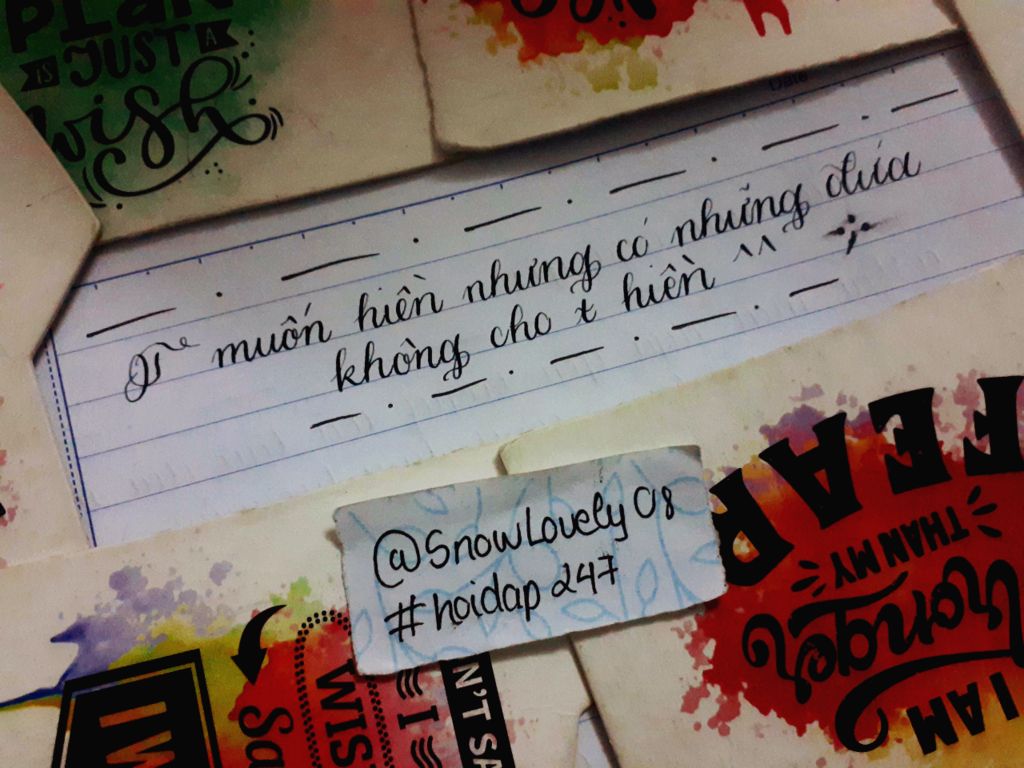 PLAN
IS JUST A
wish
Date
T muốn hiền nhưng có những đứa
không cho t hiền ^^
@SnowLovely08
#hoidap247
I AM
STRONGER
THAN MY
FEAR
N'T SA
I
WIS
Sa